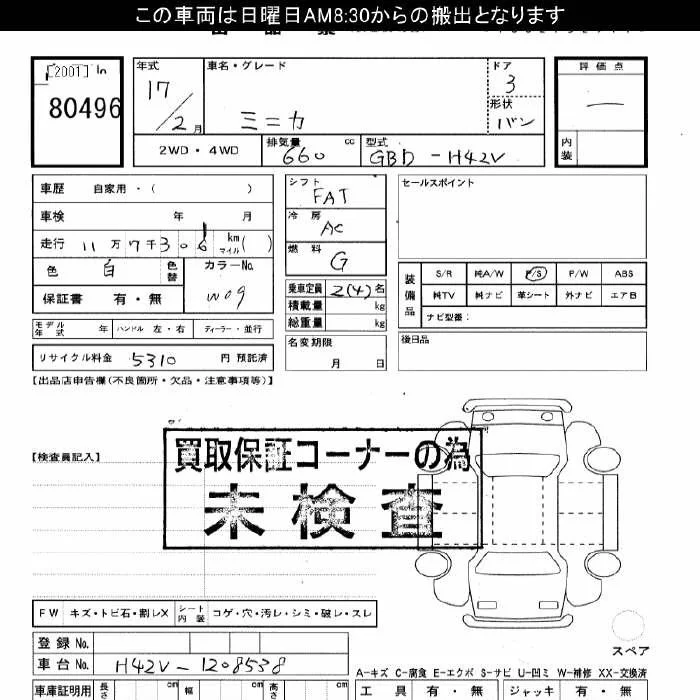 この車両は日曜日AM8:30からの搬出となります
[2001] In
80496
年式
17/2月
車名・グレード
ミニカ
ドア
3
形状
バン
評価点
一
内装
2WD・4WD
排気量 660 cc
型式 GBD-H42V
車歴 自家用・( )
車検 年 月
走行 11万7千306 km マイル ( )
色 白 色替
カラーNo. W09
保証書 有・無
シフト FAT
冷房 AC
燃料 G
乗車定員 2(4)名
積載量 kg
総重量 kg
セールスポイント
装備品
S/R 純A/W P/S P/W ABS
純TV 純ナビ 革シート 外ナビ エアB
ナビ型番:
モデル年式 年 ハンドル 左・右 ディーラー・並行
リサイクル料金 5310 円 預託済
名変期限 月 日
後日品
【出品店申告欄(不良箇所・欠品・注意事項等)】
【検査員記入】
買取保証コーナーの為
未検査
FW キズ・トビ石・割レX シート内装 コゲ・穴・汚レ・シミ・破レ・スレ
スペア
登録No.
車台No. H42V-1208538
A-キズ C-腐食 E-エクボ S-サビ U-凹ミ W-補修 XX-交換済
車庫証明用 長さ cm 幅 cm 高さ cm
工具 有・無 ジャッキ 有・無